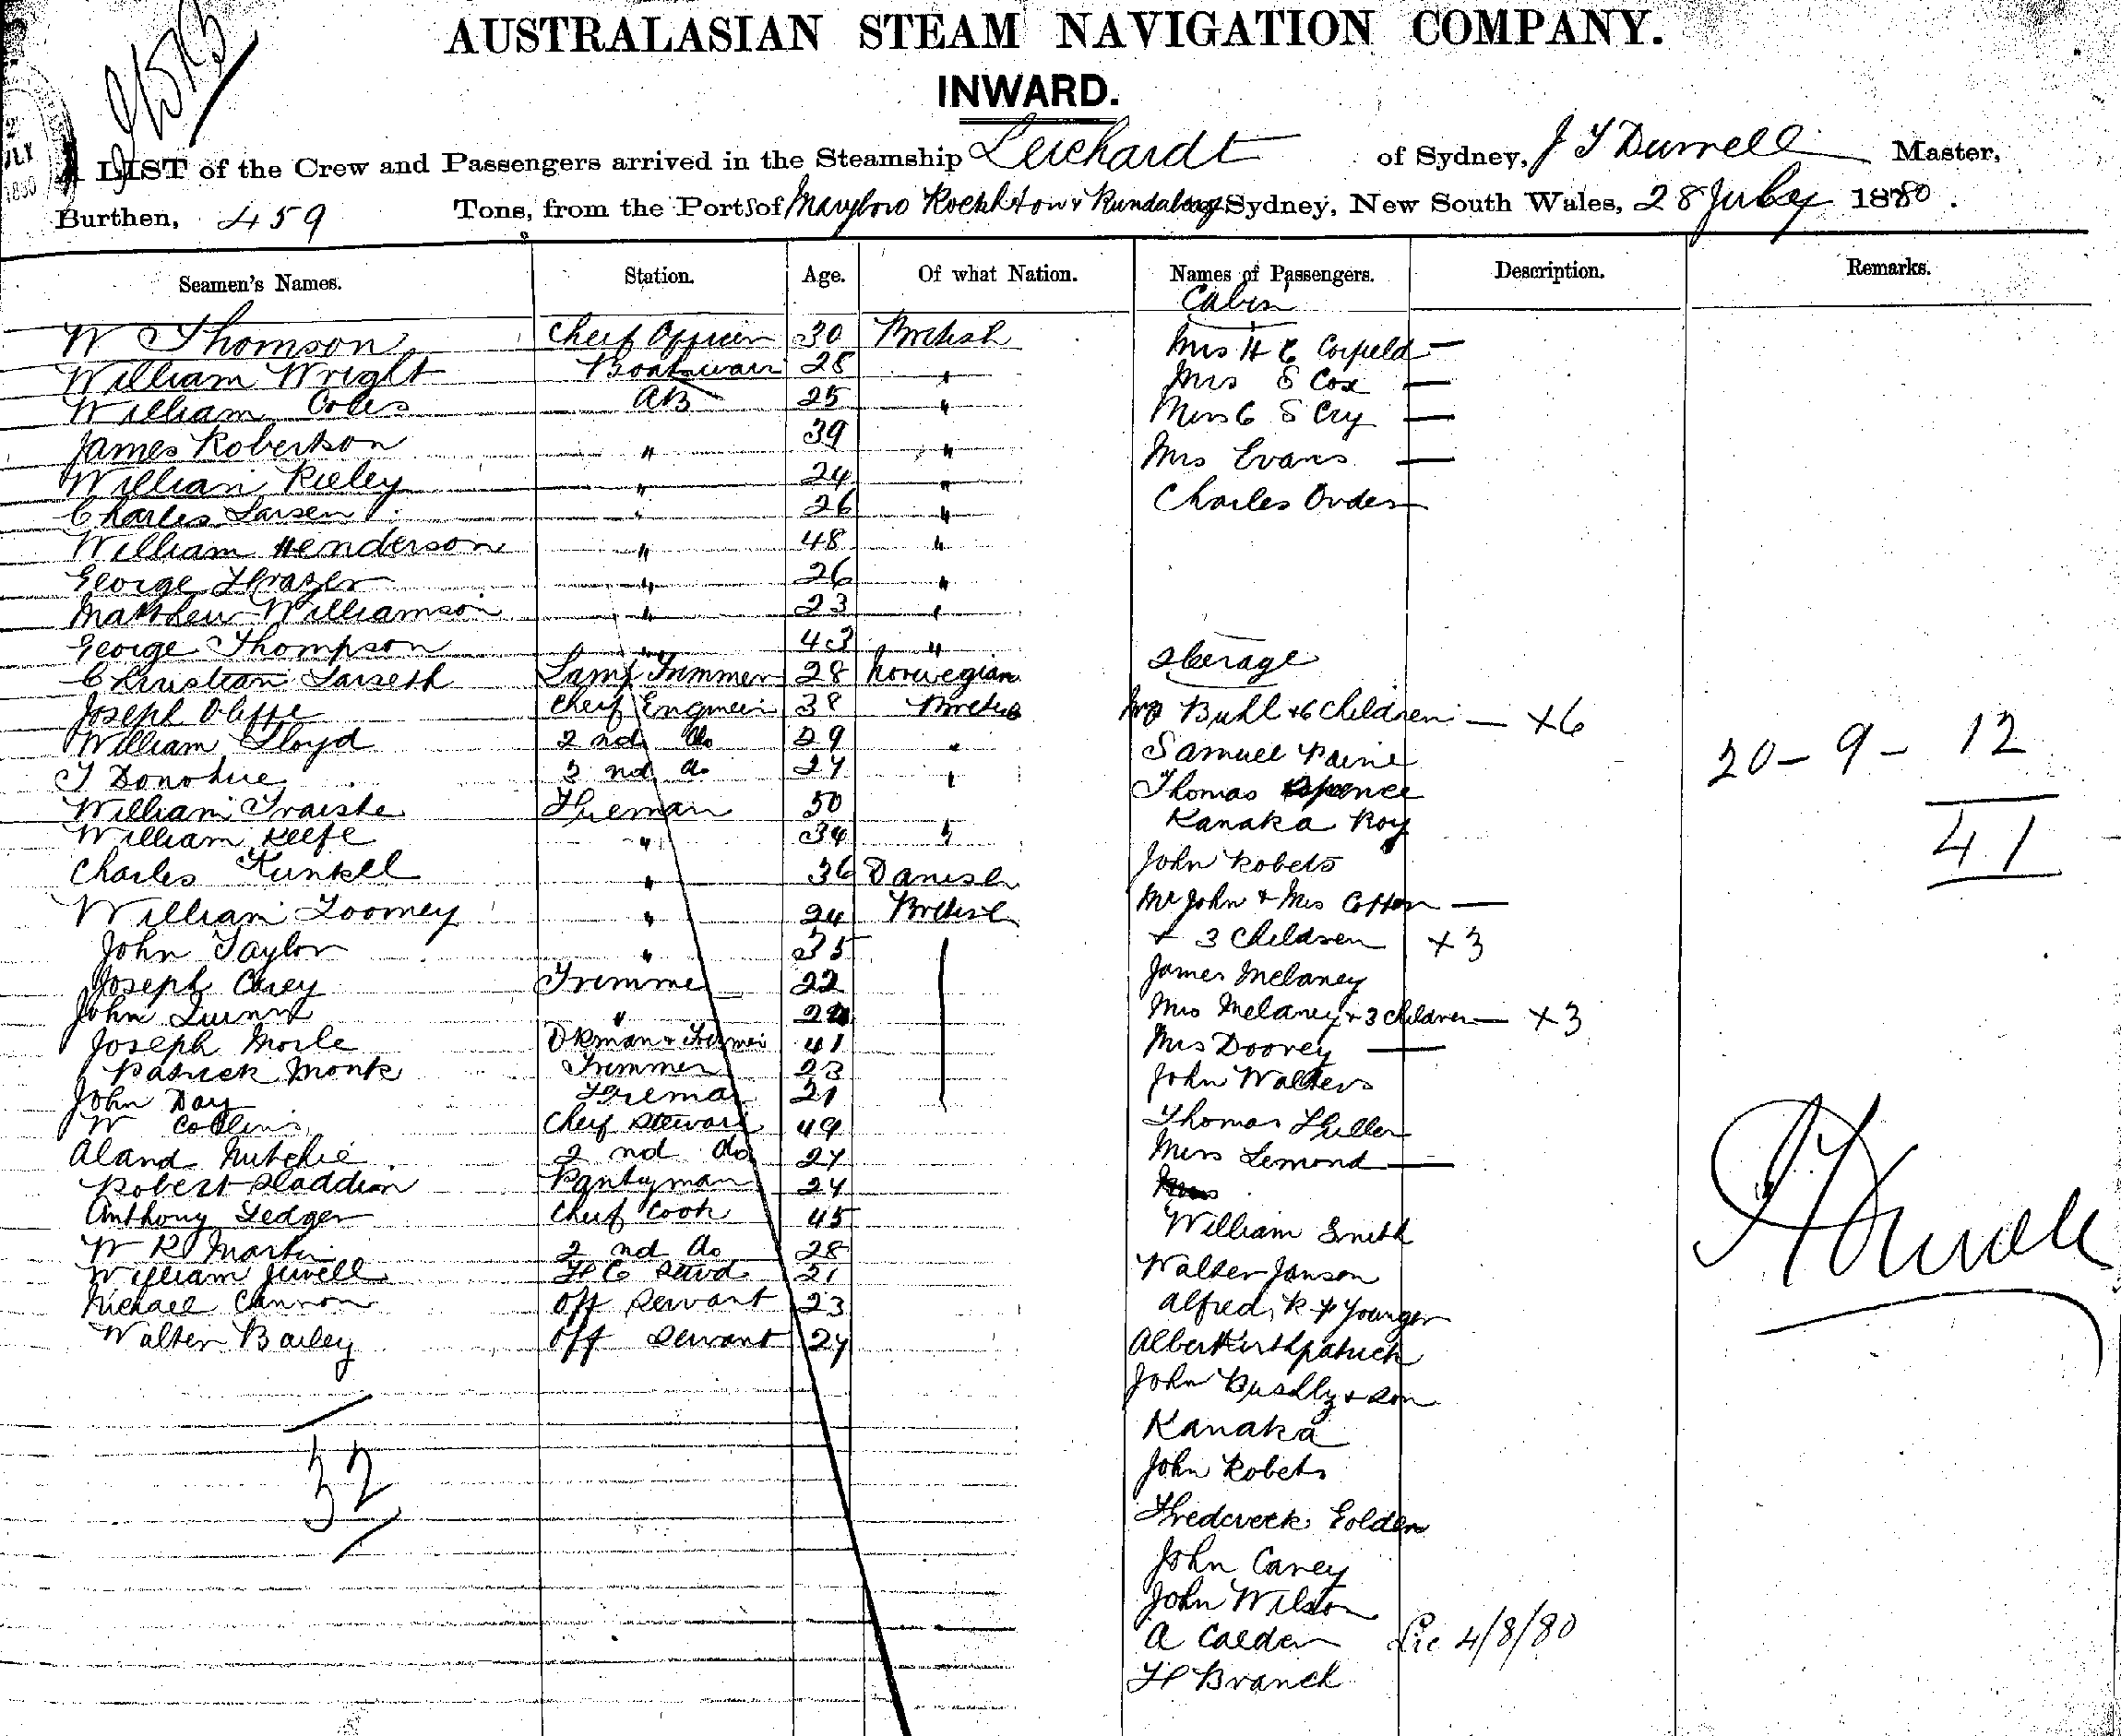 AUSTRALASIAN STEAM NAVIGATION COMPANY.
INWARD.
LIST of the Crew and Passengers arrived in the Steamship Leichardt of Sydney, J T Durrell Master,
Burthen, 459 Tons, from the Ports of Marybro Rockhton & Bundaberg Sydney, New South Wales, 28 July 1880.
Seamen's Names. Station. Age. Of what Nation. Names of Passengers. Description. Remarks.
Cabin
W Thomson Cheif Officer 30 British
William Wright Boatswain 28 "
William Coles AB 25 "
James Robertson " 39 "
William Rieley " 24 "
Charles Larsen " 26 "
William Henderson " 48 "
George Frazer " 26 "
Matthew Williamson " 23 "
George Thompson " 43 "
Christian Larseth Lamp Trimmer 28 Norwegian
Joseph Cheif Engineer 38 British
William Lloyd 2 nd do 29 "
T Donohue 3 nd do 27 "
William Fireman 50
William Keefe " 34 "
Charles Kunkell " 36 Danish
William Toomey " 24 British
John Taylor " 35
Joseph Carey Trimmer 22
John Quinn " 22
Joseph Morle Dkman & 41
Patrick Monk Trimmer 23
John Day Fireman 21
W Collins Cheif Steward 49
Aland 2 nd do 27
Robert Sladden Pantryman 24
Anthony Ledger Cheif Cook 45
W R Martin 2 nd do 28
William Jewell F C Stewd 21
Michael Cannon Off Servant 23
Walter Bailey Off Servant 27
32
Mrs H C Corfield —
Mrs S Cox —
Miss C S Cry —
Mrs Evans —
Charles Orden
Sterage
Mrs Buhl & 6 Children — +6
Samuel Paine
Thomas Spence
Kanaka Roy
John Robets
Mr John & Mrs Cotton —
+ 3 Children +3
James Melaney
Mrs Melaney & 3 children — +3
Mrs Doorey —
John Walters
Thomas Fuller
Miss Lemond —
William Smith
Walter Janson
Alfred R F Younger
Albert Kirthpatrick
John & son
Kanaka
John Robets
Fredereck Golden
John Carey
John Wilson
A Calder Lic 4/8/80
F Branch
20 – 9 – 12
41
J T Durrell